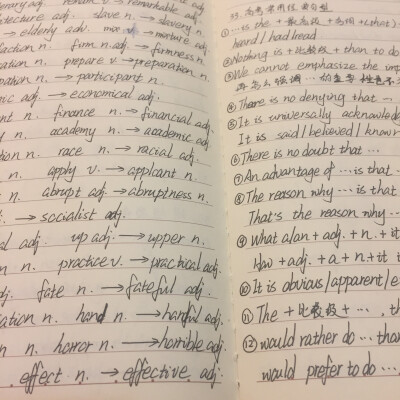 remark v. → remarkable adj.
slave n. → slavery n.
→ elderly adv. mix v. → mixture n.
firm adj. → firmness n.
prepare v → preparation n.
→ participant n.
adj. → economical adj.
finance n. → financial adj.
academy n. → academic adj.
race n. → racial adj.
apply v → applicant n.
abrupt adj → abruptness n.
→ socialist adj.
adj. up adj → upper n.
n. practice v. → practical adj.
adj. fate n. → fateful adj.
n. hand n → handful adj.
n. horror n. → horrible adj.
effect n. → effective adj.
① … is the + 最高级 + 名词 + (that)
heard / had / read
② Nothing is + 比较级 + than to do
③ We cannot emphasize the imp
再怎么强调 … 的重要性也不
④ There is no denying that …
⑤ It is universally acknowledg
It is said / believed / known
⑥ There is no doubt that …
⑦ An advantage of … is that
⑧ The reason why … is that
That's the reason why …
⑨ What a/an + adj. + n. + it
How + adj. + a + n. + it
⑩ It is obvious / apparent / e
⑪ The + 比较级 + …, th
⑫ would rather do … than
would prefer to do …,